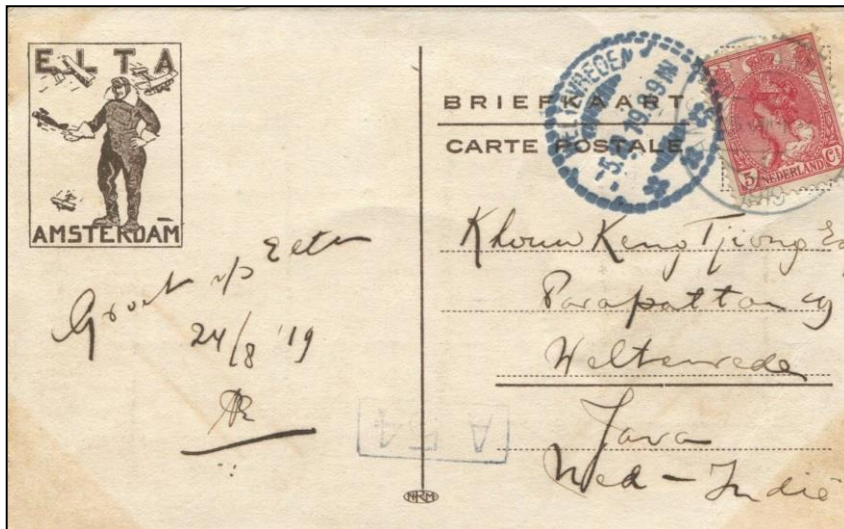 ELTA
AMSTERDAM
Groet v/d Elta
24/8 '19
AR
BRIEFKAART
CARTE POSTALE
WELTEVREDEN
5.10.19.8-9N
5 NEDERLAND Ct
Khouw Keng Tjiong Esq
Parapattan 19
Weltevreden
Java
Ned-Indië
A 54
NRM